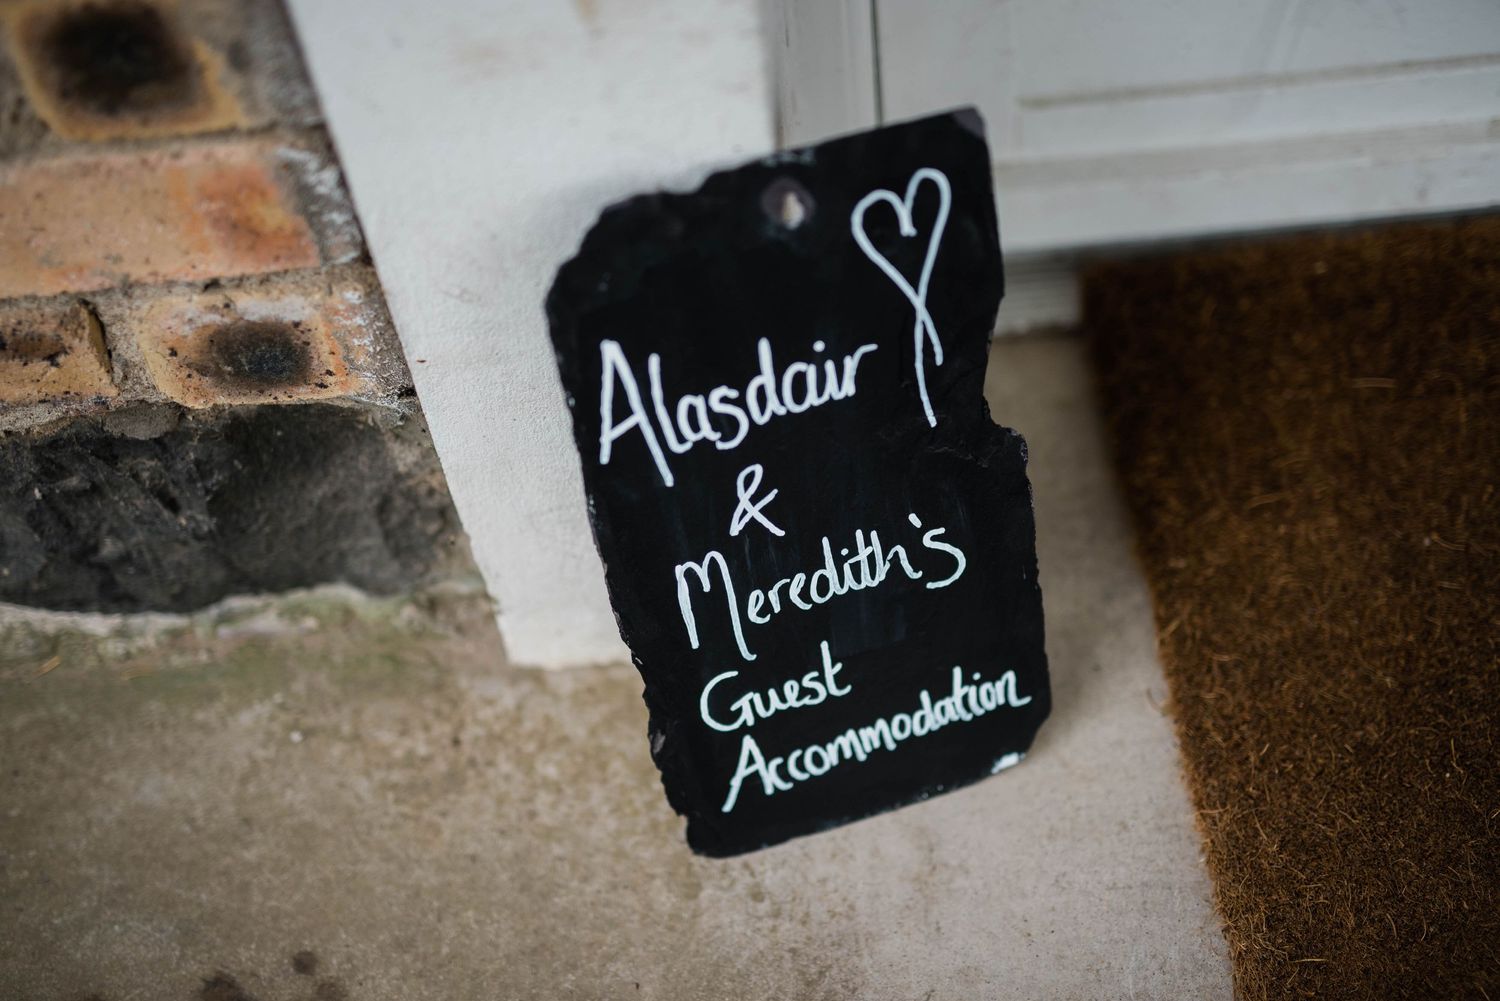 Alasdair
&
Meredith's
Guest
Accommodation